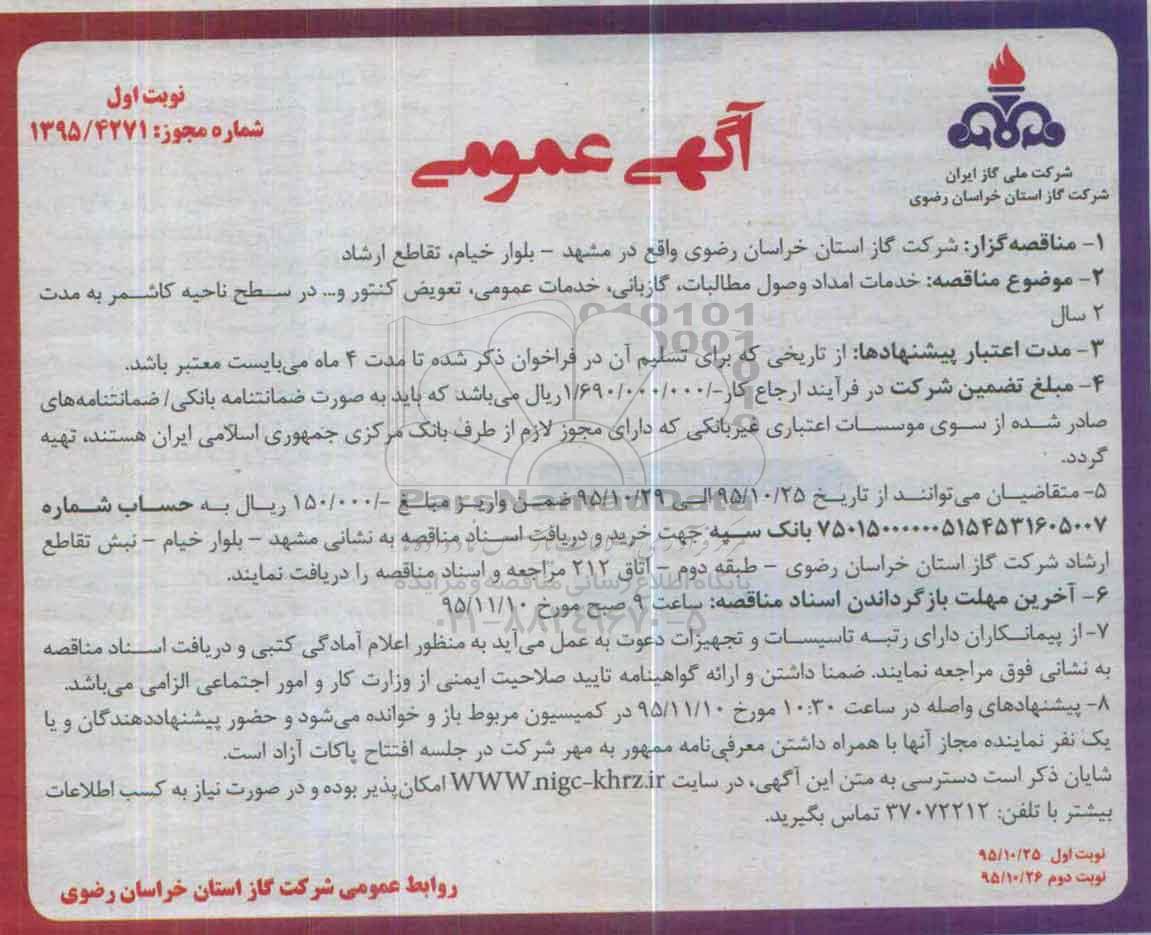 نوبت اول
شماره مجوز: ۱۳۹۵/۴۲۷۱
آگهی عمومی
شرکت ملی گاز ایران
شرکت گاز استان خراسان رضوی
۱- مناقصه‌گزار: شرکت گاز استان خراسان رضوی واقع در مشهد – بلوار خیام، تقاطع ارشاد
۲- موضوع مناقصه: خدمات امداد وصول مطالبات، گازبانی، خدمات عمومی، تعویض کنتور و... در سطح ناحیه کاشمر به مدت
۲ سال
۳- مدت اعتبار پیشنهادها: از تاریخی که برای تسلیم آن در فراخوان ذکر شده تا مدت ۴ ماه می‌بایست معتبر باشد.
۴- مبلغ تضمین شرکت در فرآیند ارجاع کار-/۱/۶۹۰/۰۰۰/۰۰۰ریال می‌باشد که باید به صورت ضمانتنامه بانکی/ ضمانتنامه‌های
صادر شده از سوی موسسات اعتباری غیربانکی که دارای مجوز لازم از طرف بانک مرکزی جمهوری اسلامی ایران هستند، تهیه
گردد.
۵- متقاضیان می‌توانند از تاریخ ۹۵/۱۰/۲۵ الی ۹۵/۱۰/۲۹ ضمن واریز مبلغ -/۱۵۰/۰۰۰ ریال به حساب شماره
۷۵۰۱۵۰۰۰۰۰۰۵۱۵۴۵۳۱۶۰۵۰۰۷ بانک سپه جهت خرید و دریافت اسناد مناقصه به نشانی مشهد – بلوار خیام – نبش تقاطع
ارشاد شرکت گاز استان خراسان رضوی – طبقه دوم – اتاق ۲۱۲ مراجعه و اسناد مناقصه را دریافت نمایند.
۶- آخرین مهلت بازگرداندن اسناد مناقصه: ساعت ۹ صبح مورخ ۹۵/۱۱/۱۰
۷- از پیمانکاران دارای رتبه تاسیسات و تجهیزات دعوت به عمل می‌آید به منظور اعلام آمادگی کتبی و دریافت اسناد مناقصه
به نشانی فوق مراجعه نمایند. ضمنا داشتن و ارائه گواهینامه تایید صلاحیت ایمنی از وزارت کار و امور اجتماعی الزامی می‌باشد.
۸- پیشنهادهای واصله در ساعت ۱۰:۳۰ مورخ ۹۵/۱۱/۱۰ در کمیسیون مربوط باز و خوانده می‌شود و حضور پیشنهاددهندگان و یا
یک نفر نماینده مجاز آنها با همراه داشتن معرفی‌نامه ممهور به مهر شرکت در جلسه افتتاح پاکات آزاد است.
شایان ذکر است دسترسی به متن این آگهی، در سایت WWW.nigc-khrz.ir امکان‌پذیر بوده و در صورت نیاز به کسب اطلاعات
بیشتر با تلفن: ۳۷۰۷۲۲۱۲ تماس بگیرید.
نوبت اول ۹۵/۱۰/۲۵
نوبت دوم ۹۵/۱۰/۲۶
روابط عمومی شرکت گاز استان خراسان رضوی
ParsNamadData
پایگاه اطلاع رسانی مناقصه و مزایده
۰۲۱-۸۸۳۴۹۶۷۰-۵